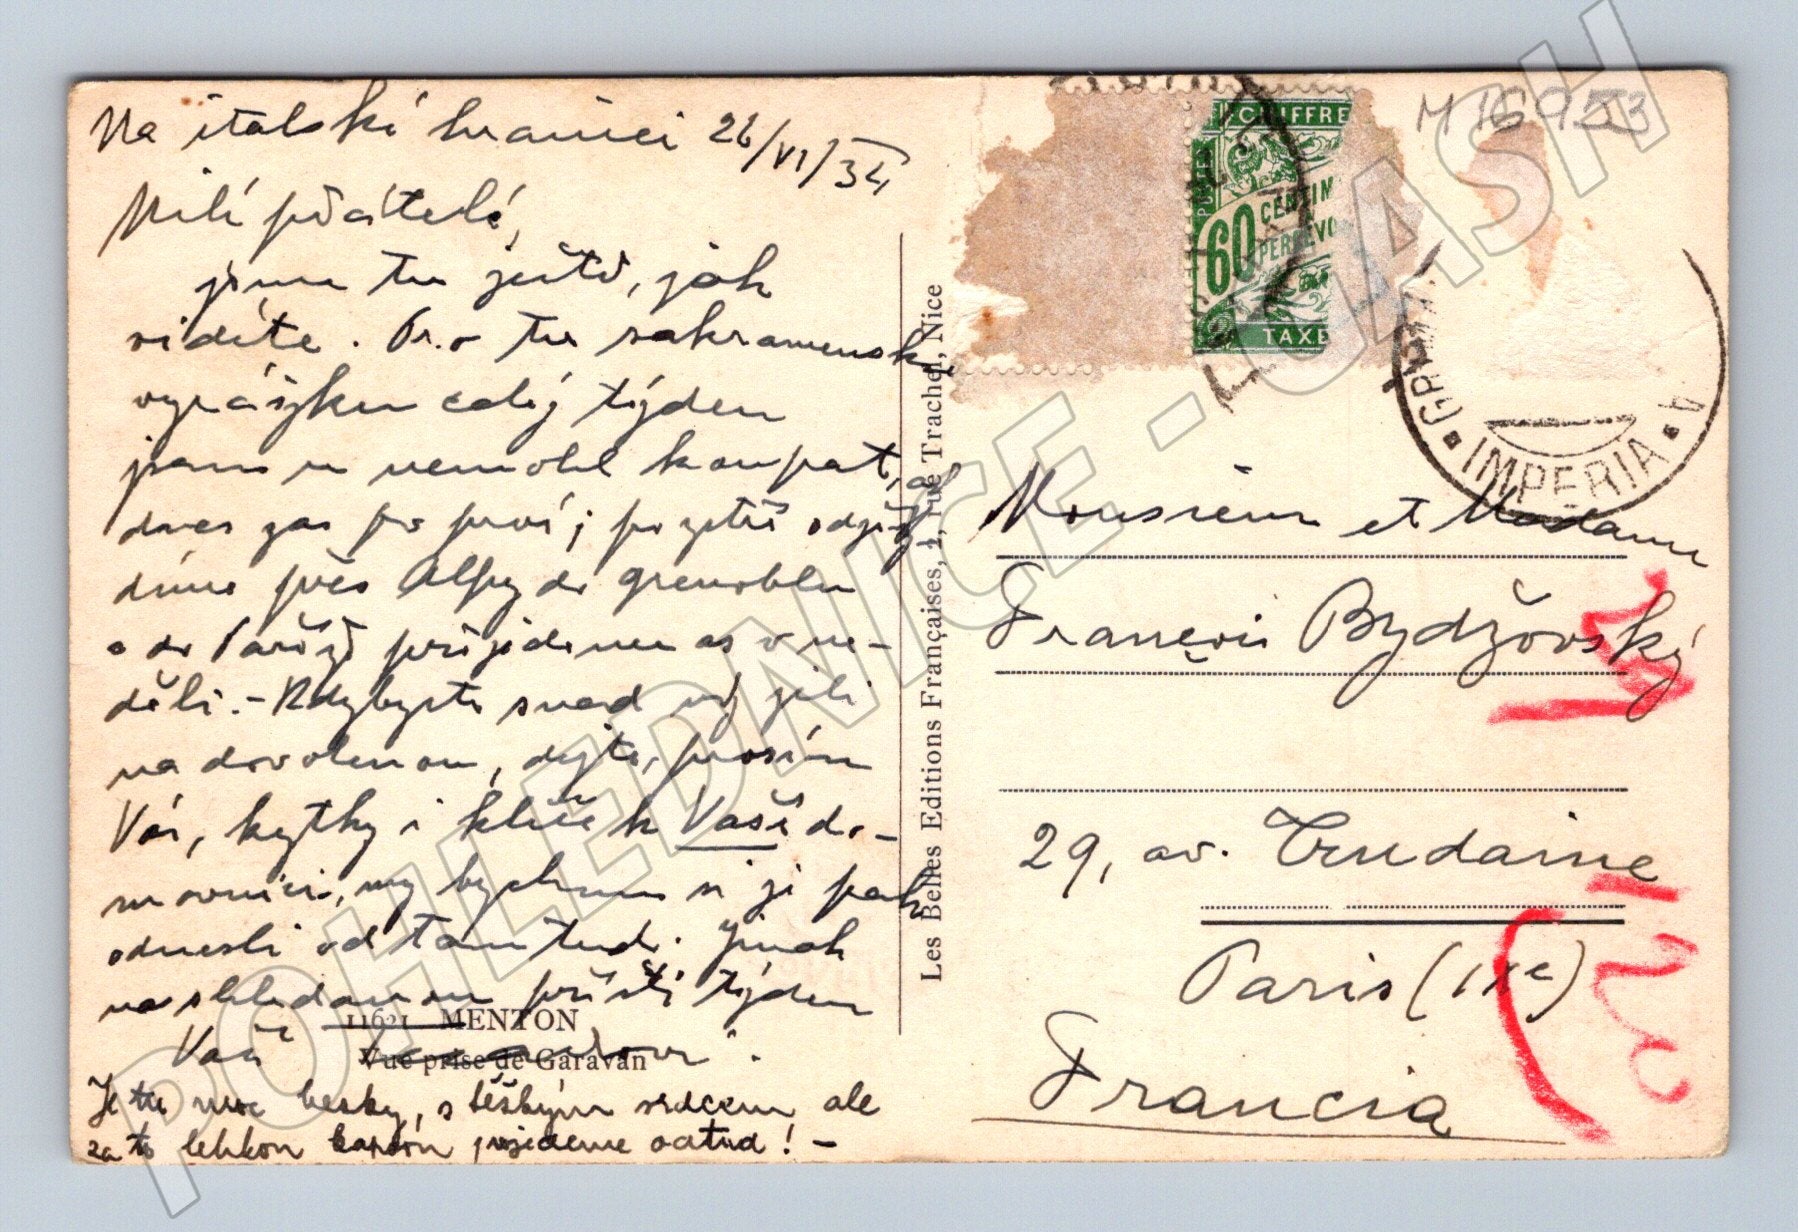 Na italské hranici 26/VI/34
Milí přátelé,
jsme tu ještě, jak
vidíte. Pro tu sakramensk
vyrážku celý týden
jsem se nemohl koupat, až
dnes zas po prvé; pozítří odjíž-
díme přes Alpy do Grenoblu
a do Paříže přijedeme as v ne-
děli. - Kdybyste snad už jeli
na dovolenou, dejte, prosím
Vás, kytky i klíče k Vaší do-
movnici, my bychom si je pak
odnesli odtamtud. Jinak
na shledanou příští týden
Vaši
Je tu moc hezky, s těžkým srdcem ale
za to lehkou kapsou pojedeme odtud! -
11621 MENTON
Vue prise de Garavan
Les Belles Editions Françaises, 2, rue Trachel, Nice
CHIFFRE
60 CENTIM
PERCEVO
TAXE
M 16953
IMPERIA
Monsieur et Madame
François Bydžovský
29, av. Trudaine
Paris (IXe)
Francia
T
120
POHLEDNICE - CASH